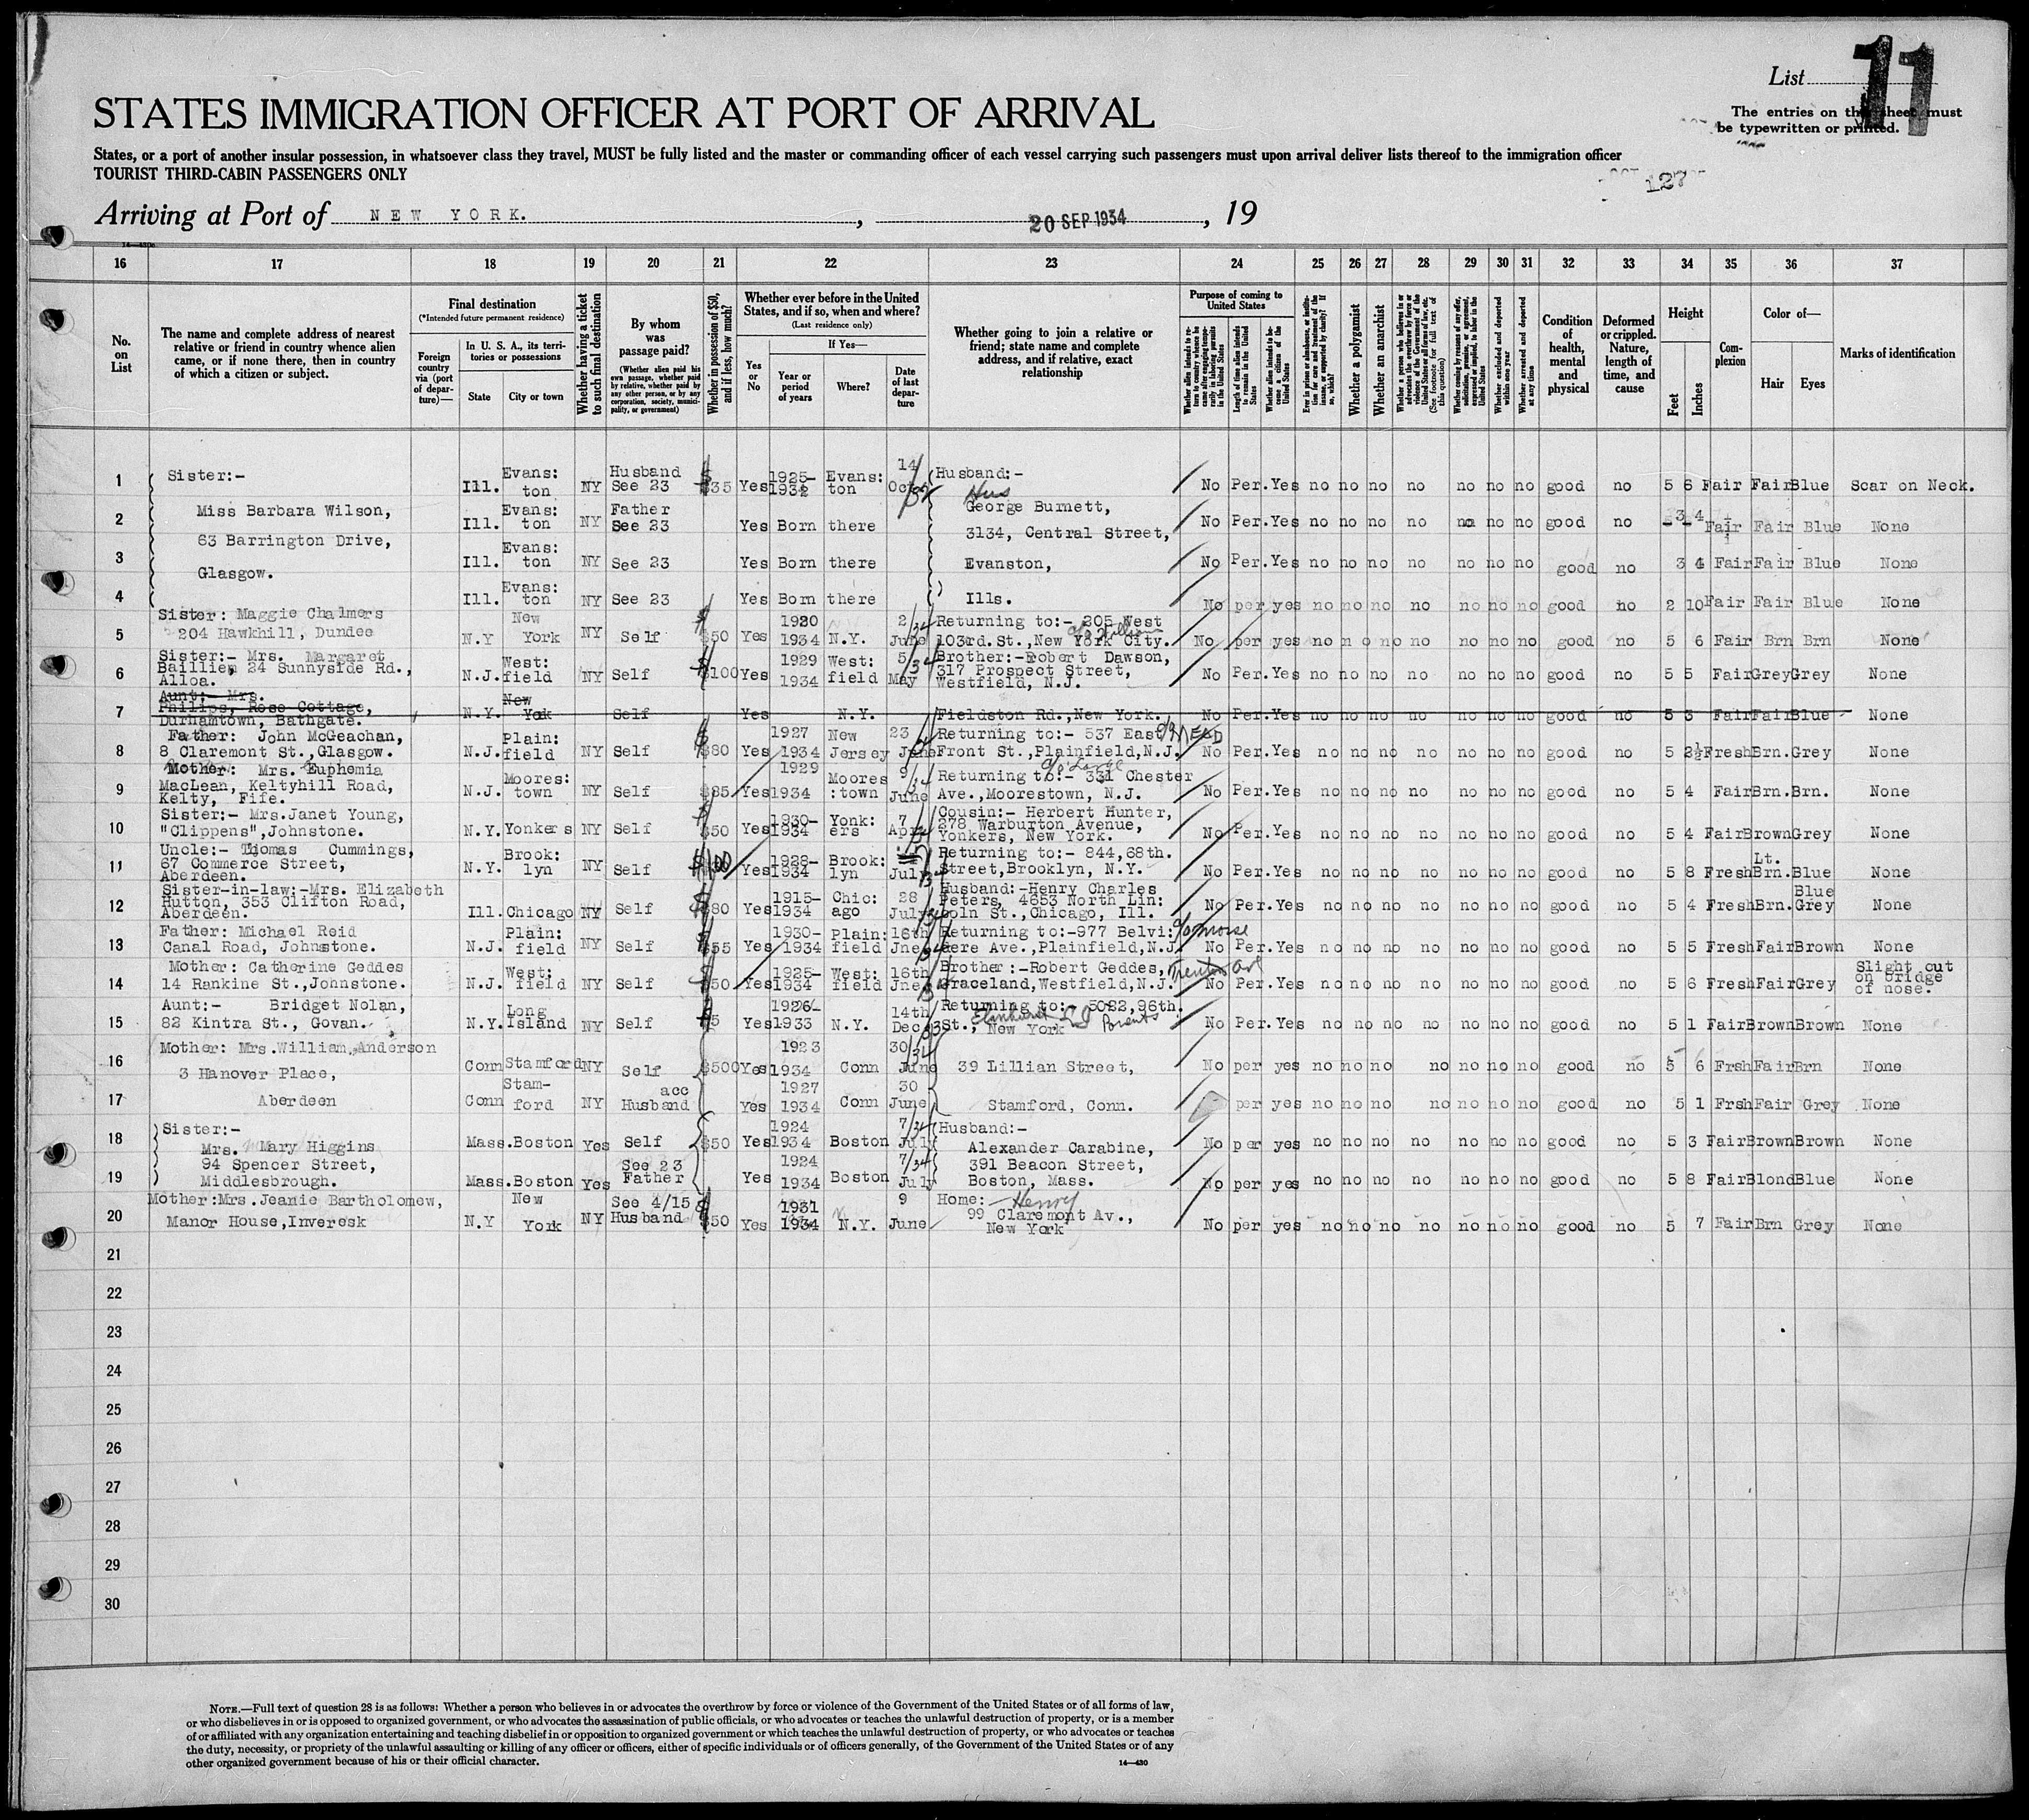 List 11
STATES IMMIGRATION OFFICER AT PORT OF ARRIVAL
The entries on this sheet must
be typewritten or printed.
States, or a port of another insular possession, in whatsoever class they travel, MUST be fully listed and the master or commanding officer of each vessel carrying such passengers must upon arrival deliver lists thereof to the immigration officer
TOURIST THIRD-CABIN PASSENGERS ONLY
127
Arriving at Port of NEW YORK. , 20 SEP 1934 , 19
16 17 18 19 20 21 22 23 24 25 26 27 28 29 30 31 32 33 34 35 36 37
No. on List
The name and complete address of nearest relative or friend in country whence alien came, or if none there, then in country of which a citizen or subject.
Final destination
(*Intended future permanent residence)
Foreign country via (port of departure)—
In U. S. A., its territories or possessions
State
City or town
Whether having a ticket to such final destination
By whom was passage paid?
(Whether alien paid his own passage, whether paid by relative, whether paid by any other person, or by any corporation, society, municipality, or government)
Whether in possession of $50, and if less, how much?
Whether ever before in the United States, and if so, when and where?
(Last residence only)
Yes or No
If Yes—
Year or period of years
Where?
Date of last departure
Whether going to join a relative or friend; state name and complete address, and if relative, exact relationship
Purpose of coming to United States
Whether alien intends to return to country whence he came after engaging temporarily in laboring pursuits in the United States
Length of time alien intends to remain in the United States
Whether alien intends to become a citizen of the United States
Whether a polygamist
Whether an anarchist
Whether excluded and deported within one year
Whether arrested and deported at any time
Condition of health, mental and physical
Deformed or crippled. Nature, length of time, and cause
Height
Feet
Inches
Complexion
Color of—
Hair
Eyes
Marks of identification
1 Sister:- Ill. Evans: ton NY Husband See 23 $35 Yes 1925- 1932 Evans: ton 14 Oct Husband:- No Per. Yes no no no no no no no good no 5 6 Fair Fair Blue Scar on Neck.
2 Miss Barbara Wilson, Ill. Evans: ton NY Father See 23 Yes Born there George Burnett, 3134, Central Street, No Per. Yes no no no no no no no good no 3 4 Fair Fair Blue None
3 63 Barrington Drive, Ill. Evans: ton NY See 23 Yes Born there Evanston, No Per. Yes no no no no no no no good no 3 4 Fair Fair Blue None
4 Glasgow. Ill. Evans: ton NY See 23 Yes Born there Ills. No per yes no no no no no no no good no 2 10 Fair Fair Blue None
5 Sister: Maggie Chalmers 204 Hawkhill, Dundee N.Y New York NY Self $50 Yes 1920 1934 N.Y. 2/34 June Returning to:- 205 West 103rd. St., New York City. No per yes no no no no no no no good no 5 6 Fair Brn Brn None
6 Sister:- Mrs. Margaret Baillie, 24 Sunnyside Rd., Alloa. N.J. West: field NY Self $100 Yes 1929 1934 West: field 5/34 May Brother:- Robert Dawson, 317 Prospect Street, Westfield, N.J. No Per. Yes no no no no no no no good no 5 5 Fair Grey Grey None
7 Aunt:- Mrs. Philips, Rose Cottage, Durhamtown, Bathgate. N.Y. New York Self Yes N.Y. Fieldston Rd., New York. No Per. Yes no no no no no no no good no 5 3 Fair Fair Blue None
8 Father: John McGeachan, 8 Claremont St., Glasgow. N.J. Plain: field NY Self $80 Yes 1927 1934 New Jersey 23 June Returning to:- 537 East Front St., Plainfield, N.J. c/o MEAD No Per. Yes no no no no no no no good no 5 2½ Fresh Brn. Grey None
9 Mother: Mrs. Euphemia MacLean, Keltyhill Road, Kelty, Fife. N.J. Moores: town NY Self $85 Yes 1929 1934 Moores :town 9/34 June Returning to:- 331 Chester Ave., Moorestown, N.J. No Per. Yes no no no no no no no good no 5 4 Fair Brn. Brn. None
10 Sister:- Mrs. Janet Young, "Clippens", Johnstone. N.Y. Yonkers NY Self $50 Yes 1930- 1934 Yonk: ers 7 April Cousin:- Herbert Hunter, 278 Warburton Avenue, Yonkers, New York. No Per. Yes no no no no no no no good no 5 4 Fair Brown Grey None
11 Uncle:- Thomas Cummings, 67 Commerce Street, Aberdeen. N.Y. Brook: lyn NY Self $100 Yes 1928- 1934 Brook: lyn July Returning to:- 844, 68th. Street, Brooklyn, N.Y. No Per. Yes no no no no no no no good no 5 8 Fresh Lt. Brn. Blue None
12 Sister-in-law:- Mrs. Elizabeth Hutton, 353 Clifton Road, Aberdeen. Ill. Chicago NY Self $80 Yes 1915- 1934 Chic: ago 28 July Husband:- Henry Charles Peters, 4653 North Lin: coln St., Chicago, Ill. No Per. Yes no no no no no no no good no 5 4 Fresh Brn. Blue Grey None
13 Father: Michael Reid Canal Road, Johnstone. N.J. Plain: field NY Self $55 Yes 1930- 1934 Plain: field 16th Jne Returning to:- 977 Belvi: dere Ave., Plainfield, N.J. c/o Morse No Per. Yes no no no no no no no good no 5 5 Fresh Fair Brown None
14 Mother: Catherine Geddes 14 Rankine St., Johnstone. N.J. West: field NY Self $50 Yes 1925- 1934 West: field 16th Jne Brother:- Robert Geddes, Trenton Ave Graceland, Westfield, N.J. No Per. Yes no no no no no no no good no 5 6 Fresh Fair Grey Slight cut on bridge of nose.
15 Aunt:- Bridget Nolan, 82 Kintra St., Govan. N.Y. Long Island NY Self $5 Yes 1926- 1933 N.Y. 14th Dec Returning to:- 3022, 96th. St., Elmhurst L I New York No Per. Yes no no no no no no no good no 5 1 Fair Brown Brown None
16 Mother: Mrs. William Anderson 3 Hanover Place, Conn Stamford NY Self $500 Yes 1923 1934 Conn 30/34 June 39 Lillian Street, No per yes no no no no no no no good no 5 6 Frsh Fair Brn None
17 Aberdeen Conn Stam- ford NY acc Husband Yes 1927 1934 Conn 30 June Stamford, Conn. per yes no no no no no no no good no 5 1 Frsh Fair Grey None
18 Sister:- Mrs. Mary Higgins Mass. Boston Yes Self $50 Yes 1924 1934 Boston 7/34 July Husband:- Alexander Carabine, No per yes no no no no no no no good no 5 3 Fair Brown Brown None
19 94 Spencer Street, Middlesbrough. Mass. Boston Yes See 23 Father Yes 1924 1934 Boston 7/34 July 391 Beacon Street, Boston, Mass. No per yes no no no no no no no good no 5 8 Fair Blond Blue None
20 Mother: Mrs. Jeanie Bartholomew, Manor House, Inveresk N.Y New York NY See 4/15 Husband $50 Yes 1931 1934 N.Y. 9 June Home:- Henry 99 Claremont Av., New York No per yes no no no no no no no good no 5 7 Fair Brn Grey None
21
22
23
24
25
26
27
28
29
30
NOTE.—Full text of question 28 is as follows: Whether a person who believes in or advocates the overthrow by force or violence of the Government of the United States or of all forms of law,
or who disbelieves in or is opposed to organized government, or who advocates the assassination of public officials, or who advocates or teaches the unlawful destruction of property, or is a member
of or affiliated with any organization entertaining and teaching disbelief in or opposition to organized government or which teaches the unlawful destruction of property, or who advocates or teaches
the duty, necessity, or propriety of the unlawful assaulting or killing of any officer or officers, either of specific individuals or of officers generally, of the Government of the United States or of any
other organized government because of his or their official character.
14—430